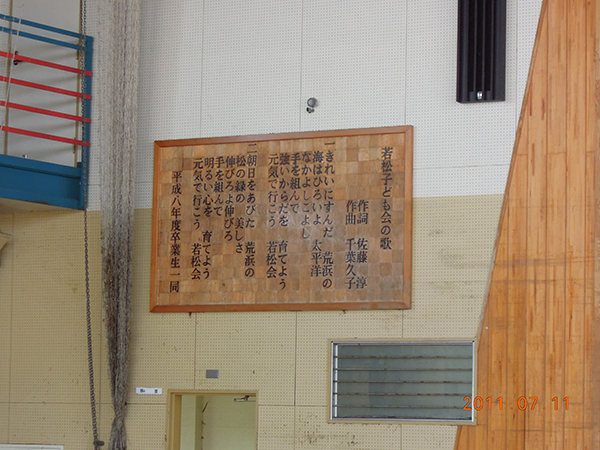 若松子ども会の歌
作詞 佐藤 淳
作曲 千葉久子
一きれいにすんだ 荒浜の
海はひろいよ 太平洋
なかよしこよし
手を組んで
強いからだを 育てよう
元気で行こう 若松会
二朝日をあびた 荒浜の
松の緑の 美しさ
伸びろよ伸びろ
手を組んで
明るい心を 育てよう
元気で行こう 若松会
平成八年度卒業生一同
2011.07.11